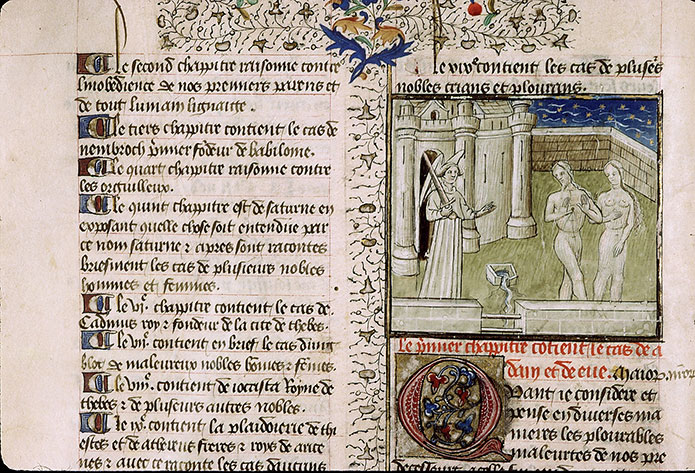 Le second chappitre raisonne contre
linobedience de nos premiers parens et
de tout lumain lignaige.
Le tiers chappitre contient le cas de
nembroth pmier fondeur de babiloine.
Le quart chappitre raisonne contre
les orguilleux.
Le quint chappitre est de saturne en
exposant quelle chose soit entendue par
ce nom saturne & apres sont racontes
briefment les cas de plusieurs nobles
hommes et femmes.
Le vi⁠e. chappitre contient le cas de
Cadmus roy & fondeur de la cite de thebes.
Le vii⁠e. contient en brief le cas dung
blot de maleureux nobles homes & femes.
Le viii⁠e. contient de iocasta royne de
thebes & de plusieurs autres nobles.
Le ix⁠e. contient la plaidoierie de thi
estes et de atheus freres & roys de
nes & avec ce raconte les cas daucuns
Le contient les cas de pluses
nobles crians et plourans.
Le pmier chappitre cotient le cas de a
dam et de eve.
Quant ie considere et
pense en diverses ma
nieres les plourables
maleurtes de nos pre